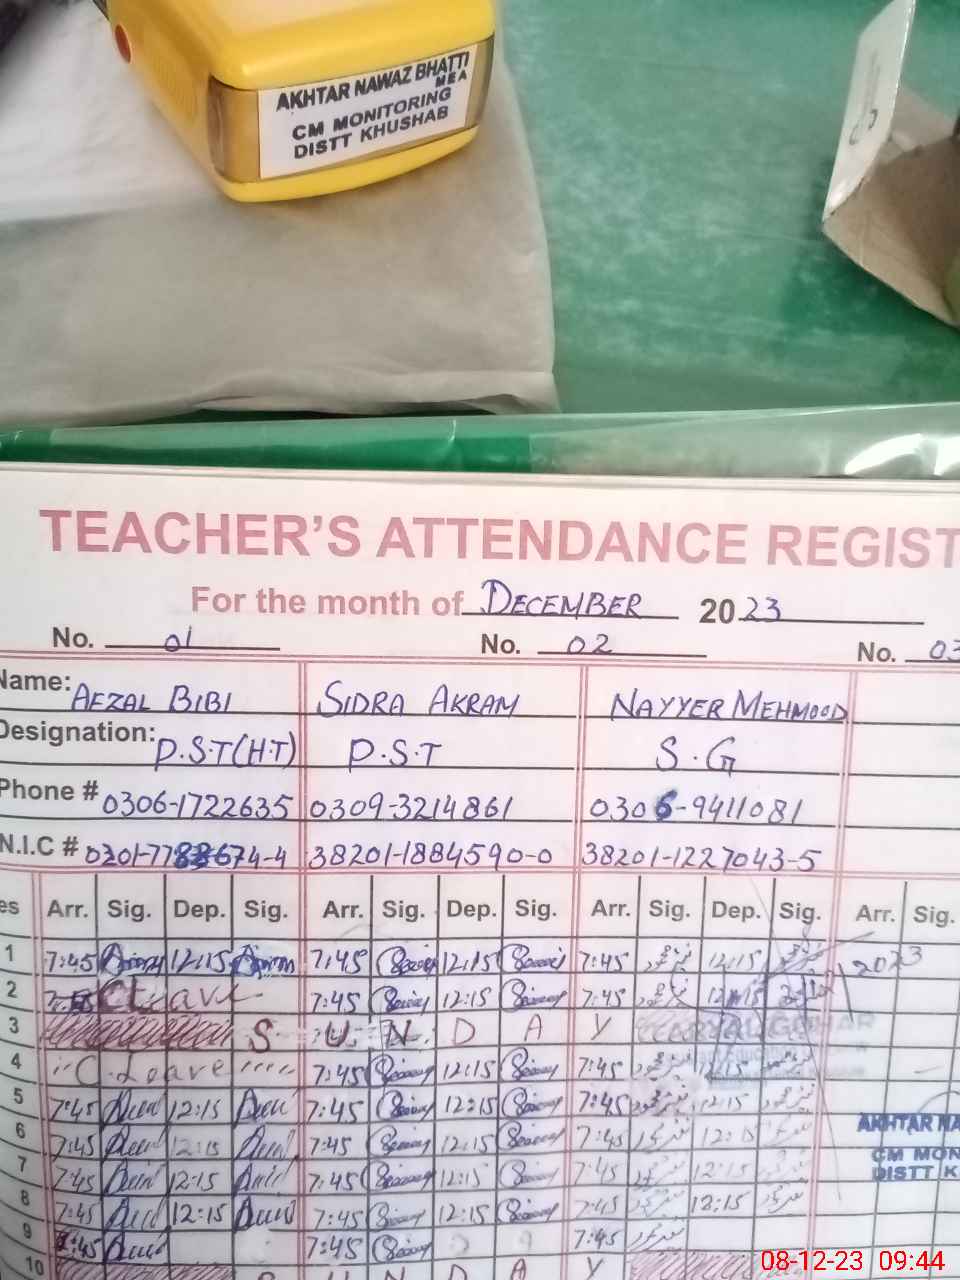 AKHTAR NAWAZ BHATTI
MEA
CM MONITORING
DISTT KHUSHAB
TEACHER'S ATTENDANCE REGIST
For the month of DECEMBER 2023
No. 01 No. 02 No. 03
Name: AFZAL BIBI SIDRA AKRAM NAYYER MEHMOOD
Designation: P.S.T(H.T) P.S.T S.G
Phone # 0306-1722635 0309-3214861 0306-9411081
N.I.C # 38201-1884590-0 38201-1227043-5
es Arr. Sig. Dep. Sig. Arr. Sig. Dep. Sig. Arr. Sig. Dep. Sig. Arr. Sig.
1 7:45 12:15 7:45 12:15 7:45 12:15 2023
2 C Leave 7:45 12:15 7:45 12:15
3 S U N D A Y
4 C. Leave 7:45 12:15 7:45 12:15
5 7:45 12:15 7:45 12:15 7:45 12:15
6 7:45 12:15 7:45 12:15 7:45 12:15
AKHTAR NA
7 7:45 12:15 7:45 12:15 7:45 12:15
CM MON
DISTT K
8 7:45 12:15 7:45 12:15 7:45 12:15
9 7:45 7:45 7:45
10 S U N D A Y
08-12-23 09:44